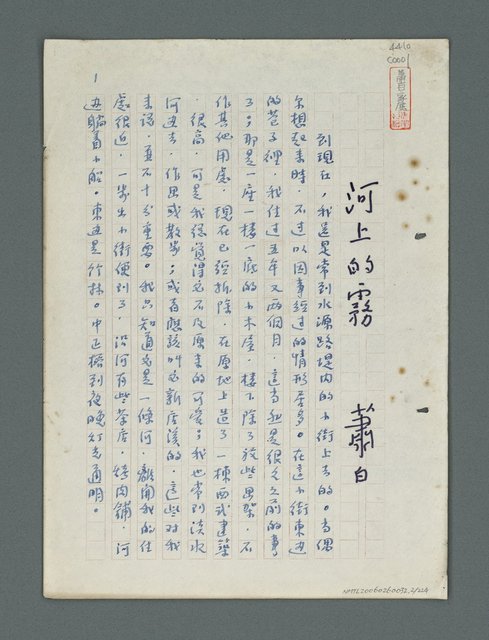 河上的霧
蕭白
到現在，我還是常到水源路堤內的小街上去的。當偶
尔想起來時，不过以因事經过的情形居多。在這小街東边
的巷子裡，我住过五年又兩個月，這當然是很久之前的事
了；那是一座一樓一底的小木屋，樓下除了放些畫架，不
作其他用處，現在已經拆除，在原地上造了一棟西式建築
，很高，可是我總覺得它不及原來的可愛；我也常到淡水
河边去，作畫或散步；或者應該叫它新店溪的，這些对我
來說，並不十分重要。我只知道它是一條河，離開我的住
處很近，一步出小街便到了，沿河有些茶店，烤肉鋪，河
边躺着小船。東边是竹林。中正橋到夜晚灯光通明。
1
4410
C0001
NMTL20060260032,2/224